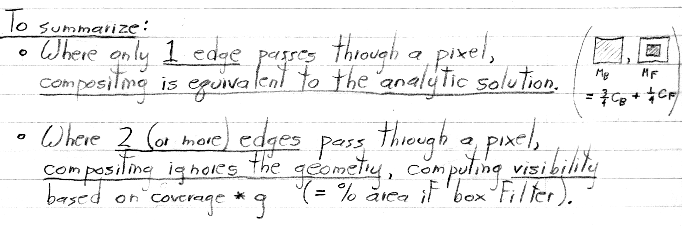 To summarize:
• Where only 1 edge passes through a pixel,
compositing is equivalent to the analytic solution.
M_B M_F
= 3/4 C_B + 1/4 C_F
• Where 2 (or more) edges pass through a pixel,
compositing ignores the geometry, computing visibility
based on coverage * g (= % area if box filter).